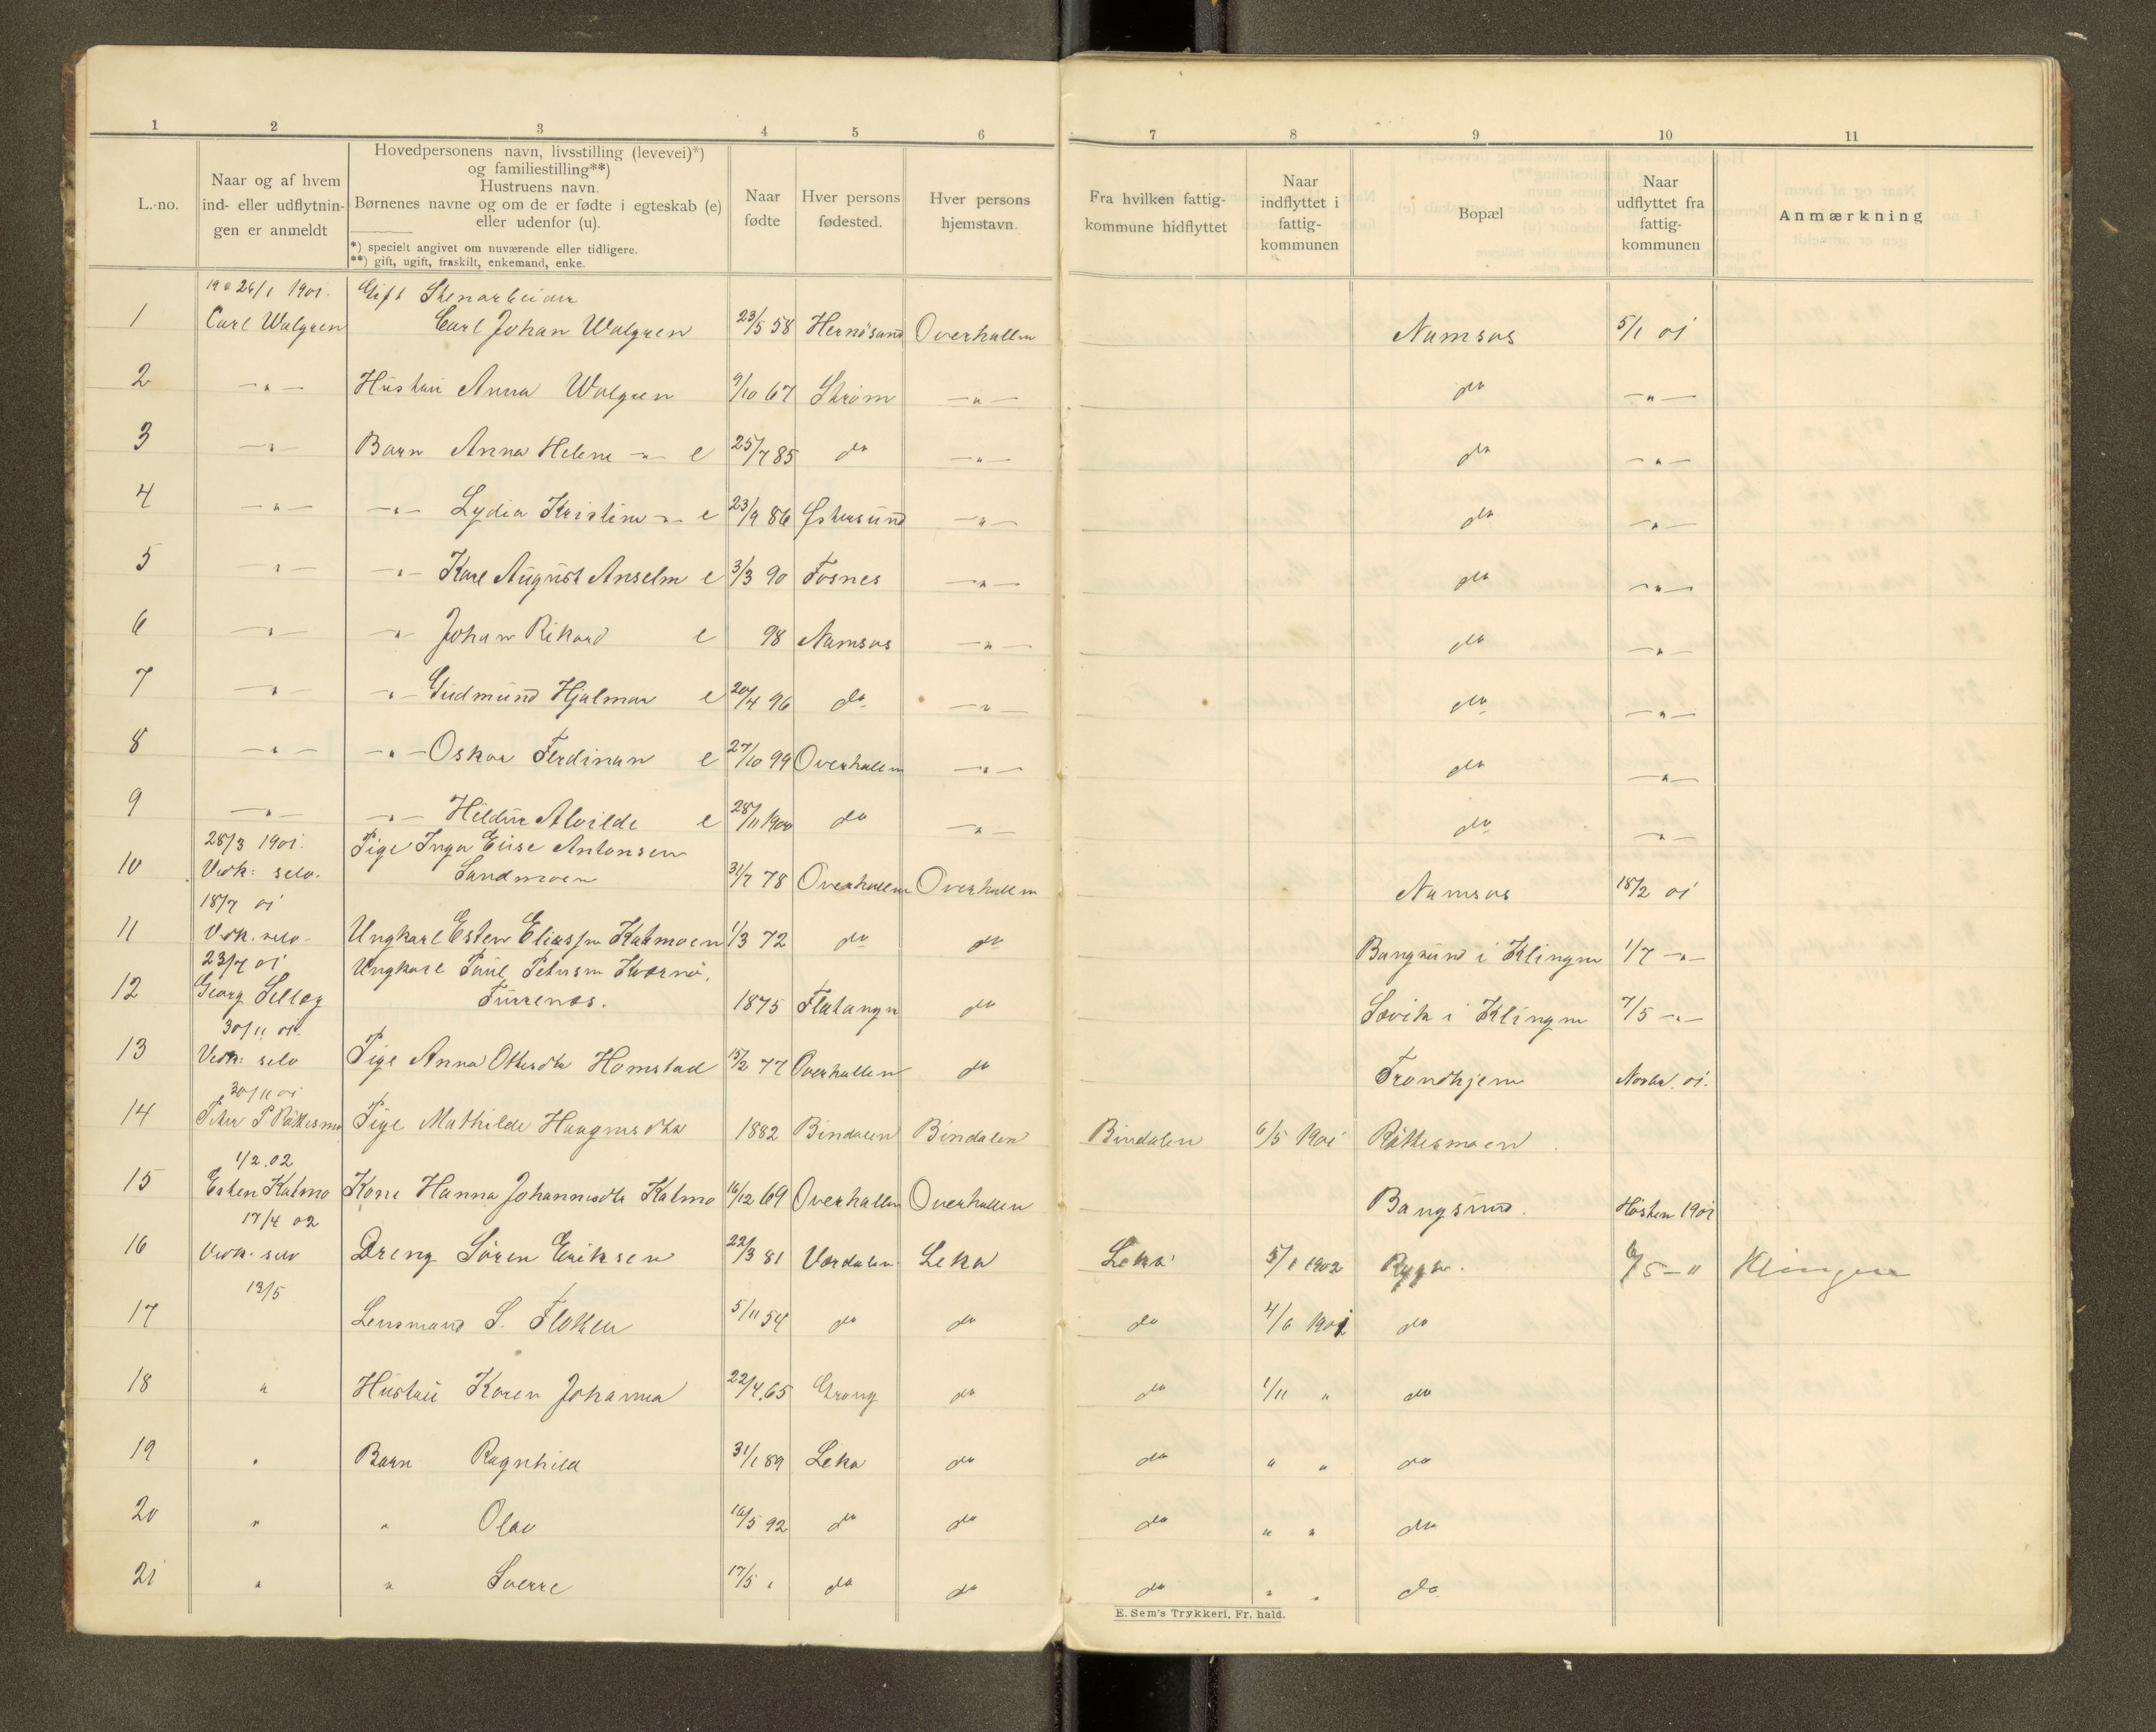 1 2 3 4 5 6 7 8 9 10 11
L.-no.
Naar og af hvem
ind- eller udflytnin-
gen er anmeldt
Hovedpersonens navn, livsstilling (levevei)*)
og familiestilling**)
Hustruens navn.
Børnenes navne og om de er fødte i egteskab (e)
eller udenfor (u).
*) specielt angivet om nuværende eller tidligere.
**) gift, ugift, fraskilt, enkemand, enke.
Naar
fødte
Hver persons
fødested.
Hver persons
hjemstavn.
Fra hvilken fattig-
kommune hidflyttet
Naar
indflyttet i
fattig-
kommunen
Bopæl
Naar
udflyttet fra
fattig-
kommunen
Anmærkning
26/1 1901. Gift Stenarbeider
1 Carl Walgren Carl Johan Walgren 23/5 58 Hernøsand Overhallen Namsos 5/1 01
2 —"— Hustru Anna Walgren 9/10 67 Strøm —"— do —"—
3 —"— Barn Anna Helene —"— e 25/7 85 do —"— do —"—
4 —"— —"— Lydia Kristine —"— e 23/9 86 Østersund —"— do —"—
5 —"— —"— Karl August Anselm e 3/3 90 Fosnes —"— do —"—
6 —"— —"— Johan Rikard e 98 Namsos —"— do —"—
7 —"— —"— Gudmund Hjalmar e 20/4 96 do —"— do —"—
8 —"— —"— Oskar Ferdinan e 27/10 99 Overhallen —"— do —"—
9 —"— —"— Hildur Alvilde e 28/11 1900 do —"— do —"—
28/3 1901. Pige Inga Elise Antonsen
10 Vedk: selv. Sandmoen 31/7 78 Overhallen Overhallen Namsos 18/2 01
18/7 01
11 Vedk. selv. Ungkarl Esten Eliassen Katmoen 1/3 72 do do Bangsund i Klingen 1/7 —"—
23/7 01 Ungkarl Paul Petersen Kvernø,
12 Georg Selløg 1875 Flatangen do Søvik i Klingen 7/5 —"—
30/11 01.
13 Vedk: selv Pige Anna Ottesdtr Homstad 15/2 77 Overhallen do Trondhjem Novbr. 01.
30/11 01
14 Peter P Råttesmo Pige Mathilde Haagensdtr 1882 Bindalen Bindalen Bindalen 6/5 1901 Råttesmoen
1/2.02
15 Esten Katmo Kone Hanna Johannesdtr Katmo 16/12 69 Overhallen Overhallen Bangsund. Høsten 1901
17/4 02
16 Vedk. selv Dreng Sören Eriksen 22/3 81 Værdalen Leka Leka 5/1 1902 6/5 —" Klingen
13/5
17 Lensmand S. Flotten 5/11 54 do do do 4/6 1901 do
18 " Hustru Karen Johanna 22/4.65 Grong do do 1/11 " do
19 " Barn Ragnhild 31/1 89 Leka do do " " do
20 " " Olav 16/5 92 do do do " " do
21 " " Sverre 17/5 " do do do " " do
E. Sem's Trykkeri, Fr. hald.